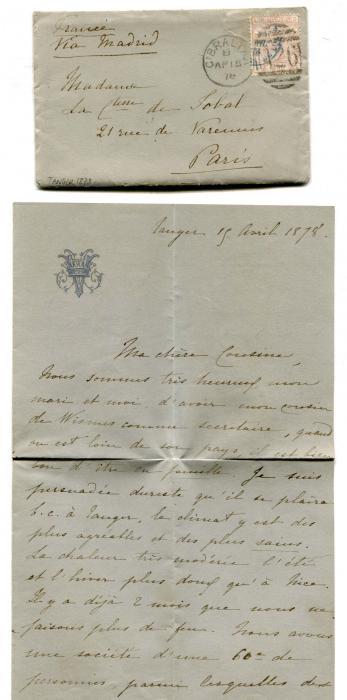 France
Via Madrid
GIBRALTAR
AP 15
78
Madame
La Ctesse de Sobat
21 rue de Varennes
Paris
TANGER 1878
Tanger 15 Avril 1878.
Ma chère Cousine,
Nous sommes très heureux mon
mari et moi d'avoir mon cousin
de Wismes comme secrétaire, quand
on est loin de son pays, il est bien
bon d'être en famille. Je suis
persuadée du reste qu'il se plaira
b.c. à Tanger, le climat y est des
plus agréables et des plus sains.
La chaleur très modérée l'été
et l'hiver plus doux qu'à Nice.
Il y a déjà 2 mois que nous ne
faisons plus de feu. Nous avons
une société d'une 60ne de
personnes, parmi lesquelles des